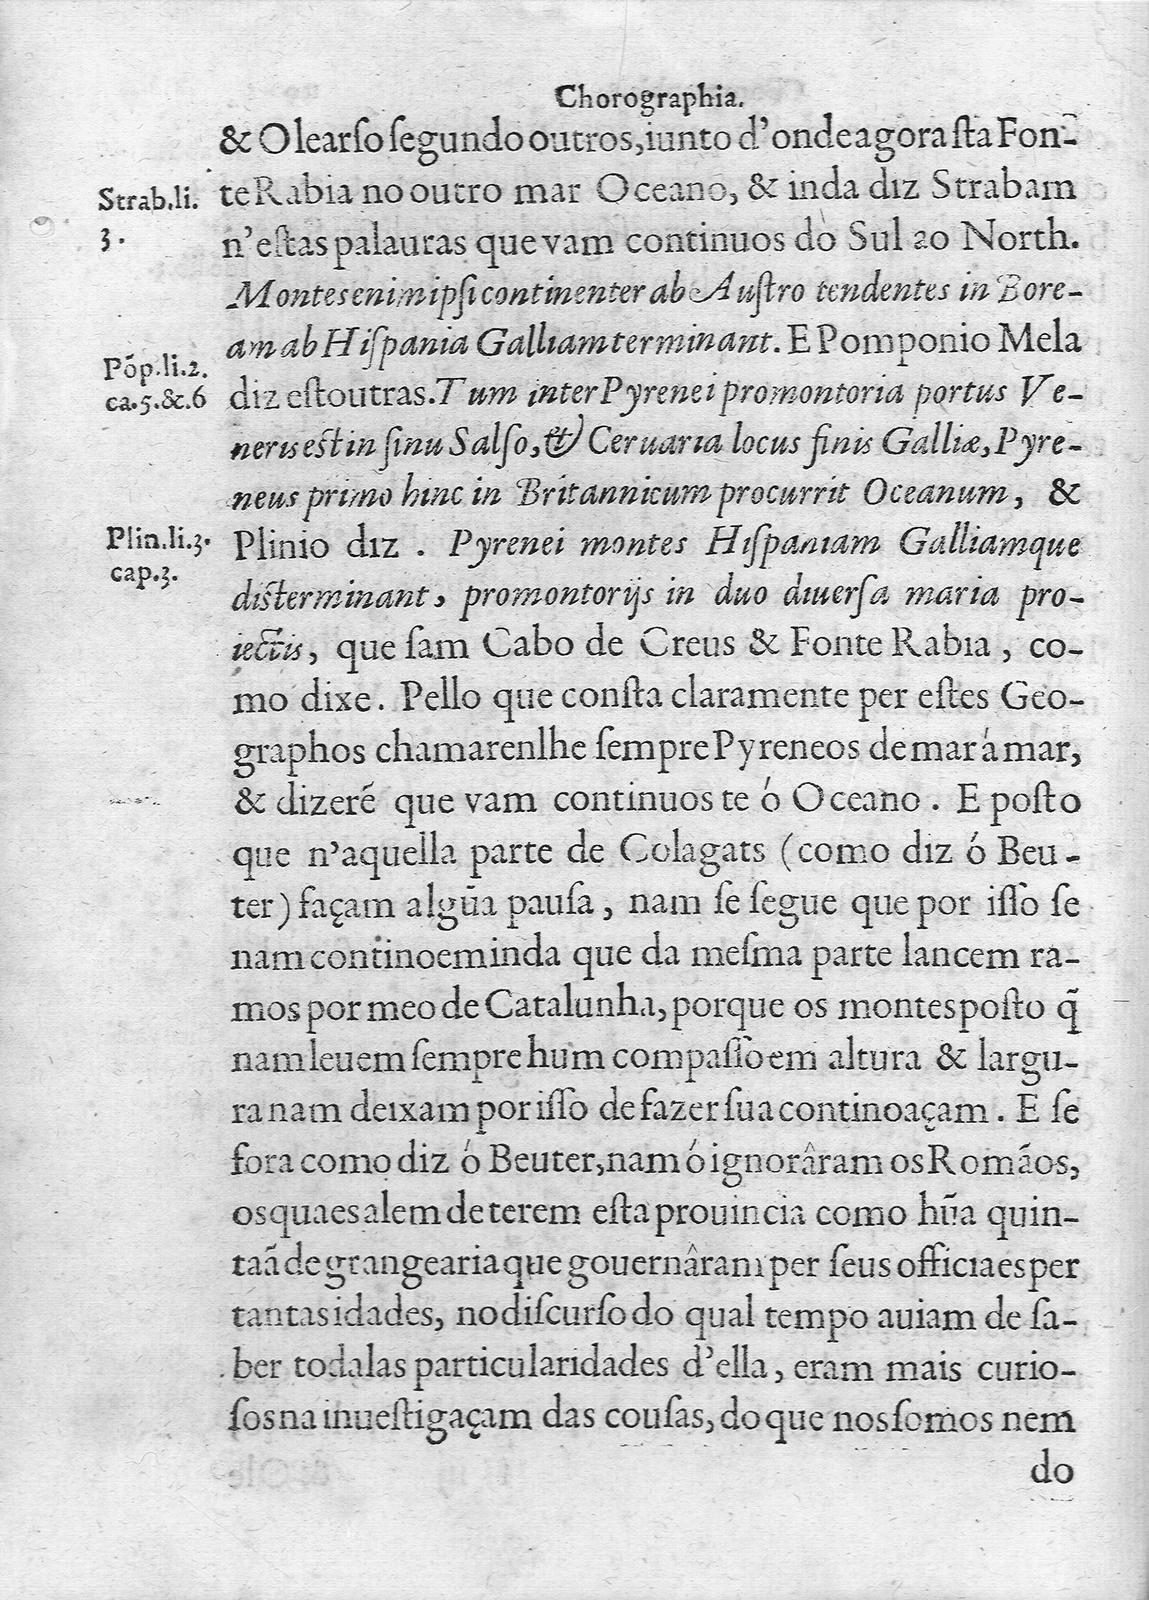 Chorographia.
& Olearſo ſegundo outros, iunto d'onde agora ſta Fon-
Strab.li. te Rabia no outro mar Oceano, & inda diz Strabam
3. n'eſtas palauras que vam continuos do Sul ao North.
Montes enim ipſi continenter ab Auſtro tendentes in Bore-
am ab Hiſpania Galliam terminant. E Pomponio Mela
Põp.li.2. diz eſtoutras. Tum inter Pyrenei promontoria portus Ve-
ca.5.&.6
neris eſt in ſinu Salſo, & Ceruaria locus finis Galliæ, Pyre-
neus primo hinc in Britannicum procurrit Oceanum, &
Plin.li.3. Plinio diz . Pyrenei montes Hiſpaniam Galliamque
cap.3.
diſterminant, promontorijs in duo diuerſa maria pro-
iectis, que ſam Cabo de Creus & Fonte Rabia , co-
mo dixe. Pello que conſta claramente per eſtes Geo-
graphos chamarenlhe ſempre Pyreneos de mar á mar,
& dizerẽ que vam continuos te ó Oceano . E poſto
que n'aquella parte de Colagats (como diz ó Beu-
ter) façam algũa pauſa , nam ſe ſegue que por iſſo ſe
nam continoem inda que da meſma parte lancem ra-
mos por meo de Catalunha, porque os montes poſto q̃
nam leuem ſempre hum compaſſo em altura & largu-
ra nam deixam por iſſo de fazer ſua continoaçam . E ſe
fora como diz ó Beuter, nam ó ignorâram os Romãos,
os quaes alem de terem eſta prouincia como hũa quin-
taã de grangearia que gouernâram per ſeus officiaes per
tantas idades, no diſcurſo do qual tempo auiam de ſa-
ber todalas particularidades d'ella , eram mais curio-
ſos na inueſtigaçam das couſas, do que nos ſomos nem
do